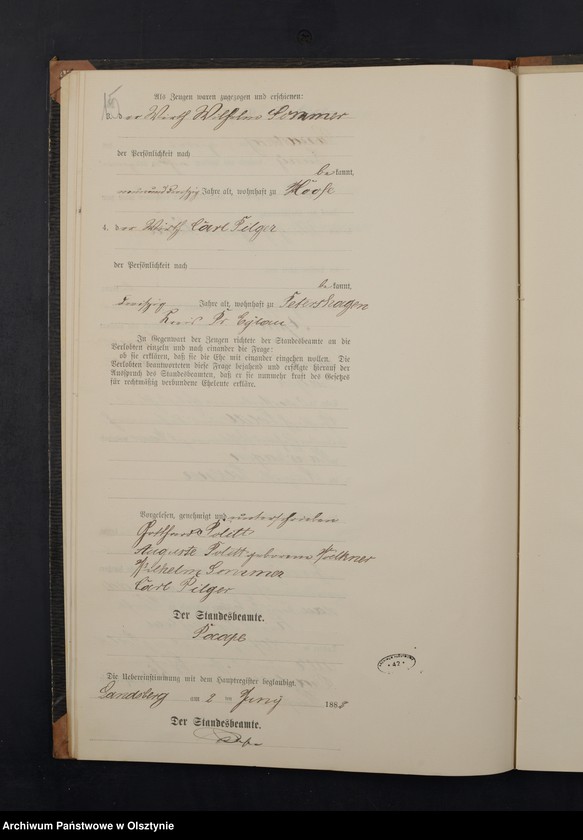 Als Zeugen waren zugezogen und erschienen:
3. der Wirth Wilhelm Sommer
der Persönlichkeit nach
bekannt,
neunundzwanzig Jahre alt, wohnhaft zu Hoofe
4. der Wirth Carl Pilger
der Persönlichkeit nach
bekannt,
dreißig Jahre alt, wohnhaft zu Petershagen
Kreis Pr. Eylau
In Gegenwart der Zeugen richtete der Standesbeamte an die
Verlobten einzeln und nach einander die Frage:
ob sie erklären, daß sie die Ehe mit einander eingehen wollen. Die
Verlobten beantworteten diese Frage bejahend und erfolgte hierauf der
Ausspruch des Standesbeamten, daß er sie nunmehr kraft des Gesetzes
für rechtmäßig verbundene Eheleute erkläre.
Vorgelesen, genehmigt und unterschrieben
Gotthard Politt
Auguste Politt geborene Volkner
Wilhelm Sommer
Carl Pilger
Der Standesbeamte.
Paape
Die Uebereinstimmung mit dem Hauptregister beglaubigt.
Landsberg am 2 ten Juny 1888
Der Standesbeamte.
42
Archiwum Państwowe w Olsztynie